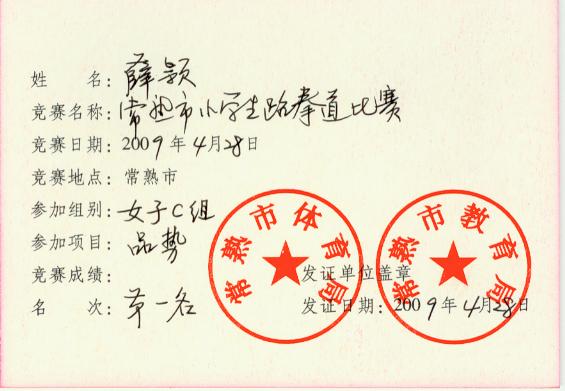 姓 名：薛颖
竞赛名称：常熟市小学生跆拳道比赛
竞赛日期：2009年4月28日
竞赛地点：常熟市
参加组别：女子C组
参加项目：品势
竞赛成绩：
名 次：第一名
常熟市体育局
常熟市教育局
发证单位盖章
发证日期：2009年4月28日